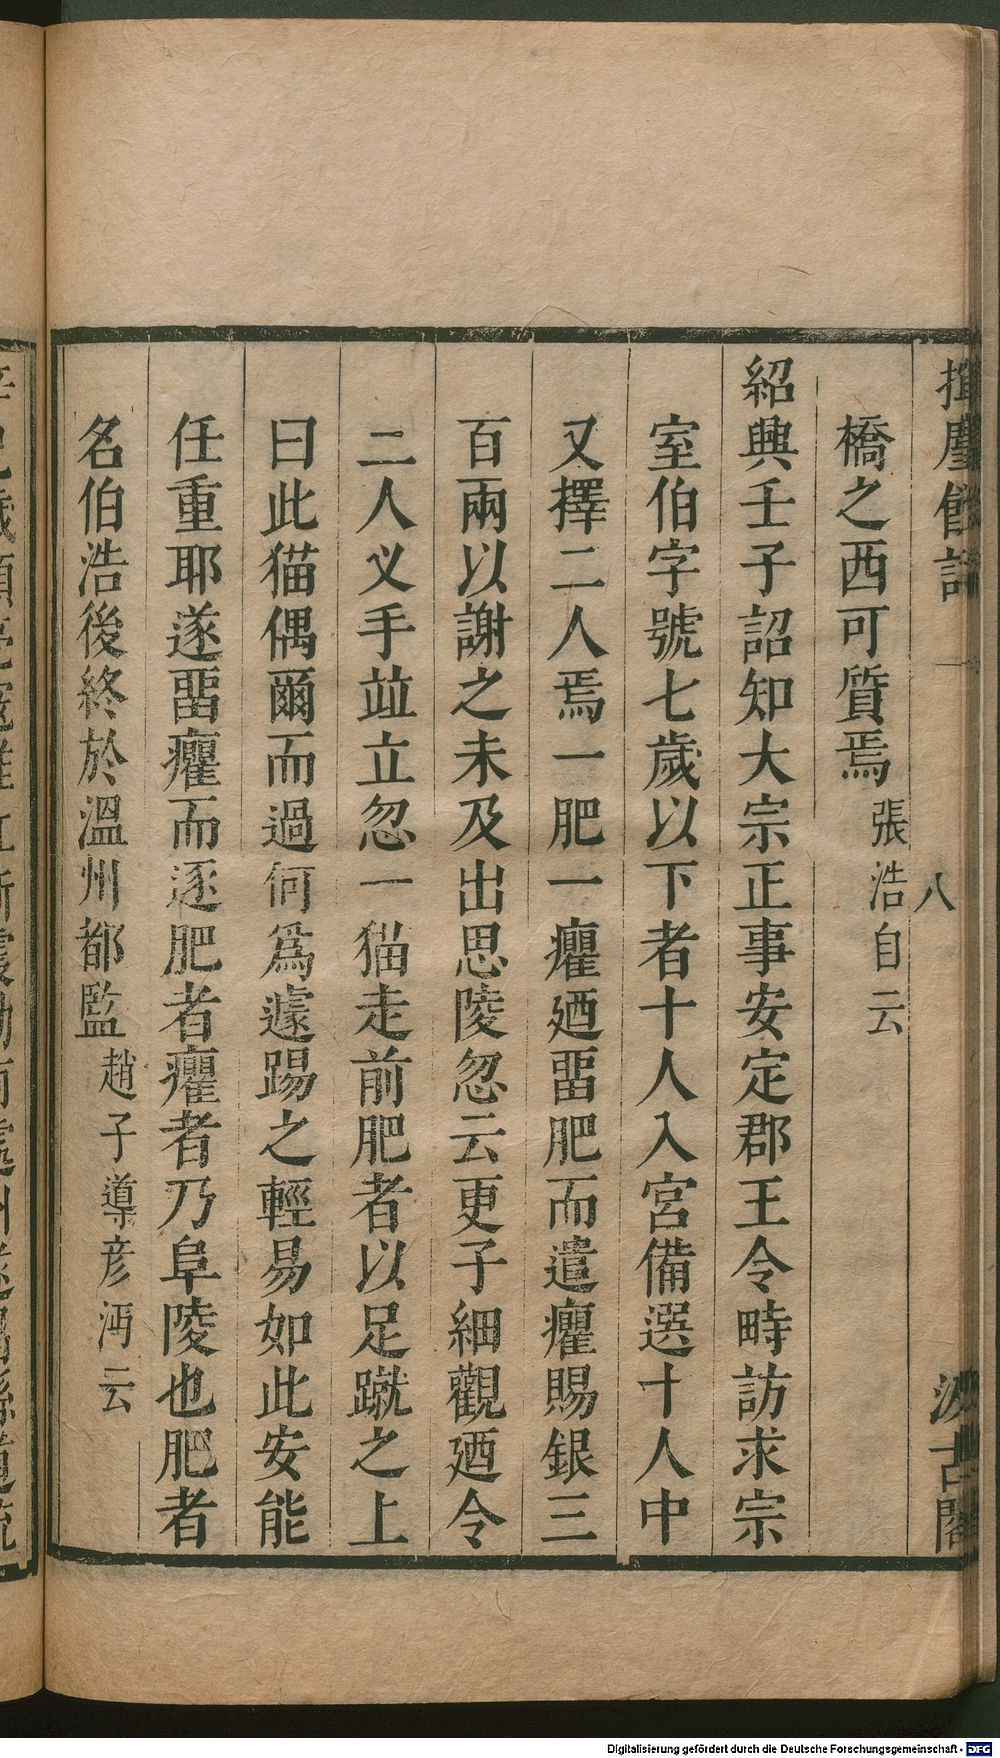 揮麈餘話 一 八 汲古閣
橋之西可質焉張浩自云
紹興壬子詔知大宗正事安定郡王令畤訪求宗
室伯字號七歲以下者十人入宮備選十人中
又擇二人焉一肥一癯廼畱肥而遣癯賜銀三
百兩以謝之未及出思陵忽云更子細觀廼令
二人义手竝立忽一猫走前肥者以足蹴之上
曰此猫偶爾而過何爲遽踢之輕易如此安能
任重耶遂畱癯而逐肥者癯者乃阜陵也肥者
名伯浩後終於溫州都監趙子導彥沔云